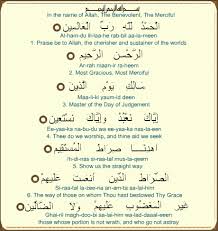 In the name of Allah, The Benevolent, The Merciful
الحمد لله رب العالمين
Al-ham-du lil-laa-he rab-bil aa-la-meen
1. Praise be to Allah, the cherisher and sustainer of the worlds
الرحمن الرحيم
Ar-rah maan-ir ra-heem
2. Most Gracious, Most Merciful
مالك يوم الدين
Maa-li-ki yaum-id deen
3. Master of the Day of Judgement
إياك نعبد وإياك نستعين
Ee-yaa-ka na-bu-du wa ee-yaa-ka nas-ta-een
4. Thee do we worship, and thine aid we seek
اهدنا الصراط المستقيم
5. Show us the straight way
صراط الذين أنعمت عليهم
6. The way of those on whom Thou hast bestowed Thy Grace
غير المغضوب عليهم ولا الضالين
those whose portion is not wrath, and who go not astray